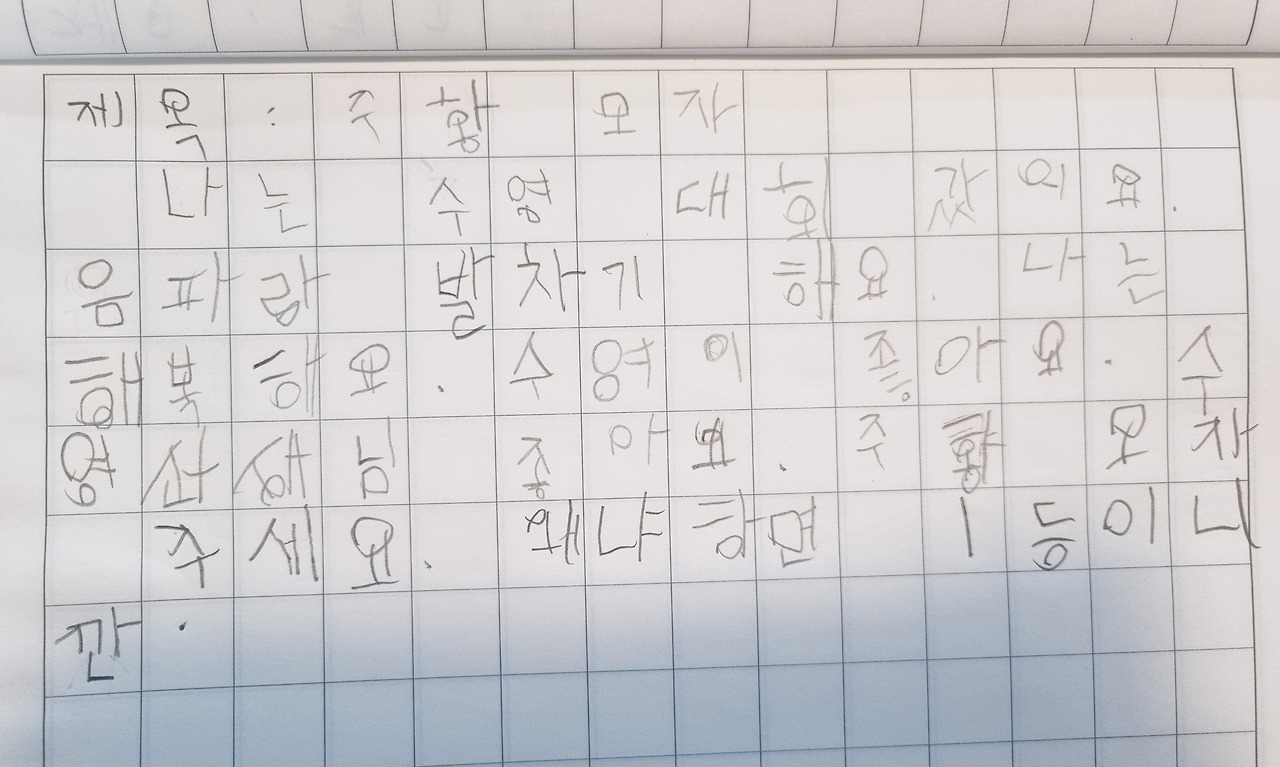 제목: 주황 모자
나는 수영 대회 갔어요.
음파랑 발차기 해요. 나는
행복해요. 수영이 좋아요. 수
영선생님 종아요. 주황 모자
주세요. 왜냐하면 1등이니
깐.